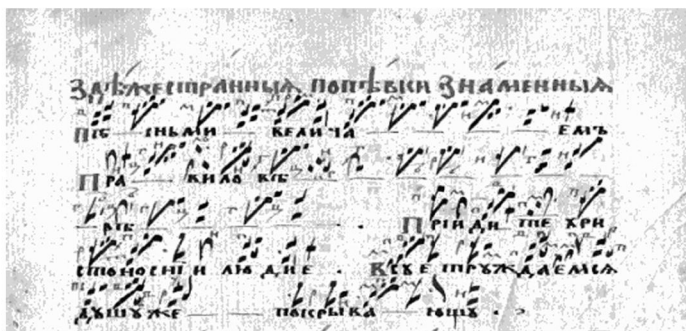 Здѣ же странныя попѣвки знаменныя
Пѣ сньми велича емъ
Пра вило вѣ
рѣ Прїиди те хри
стоноснїи людие Всуе труждаемся
душу же покрыва ющу